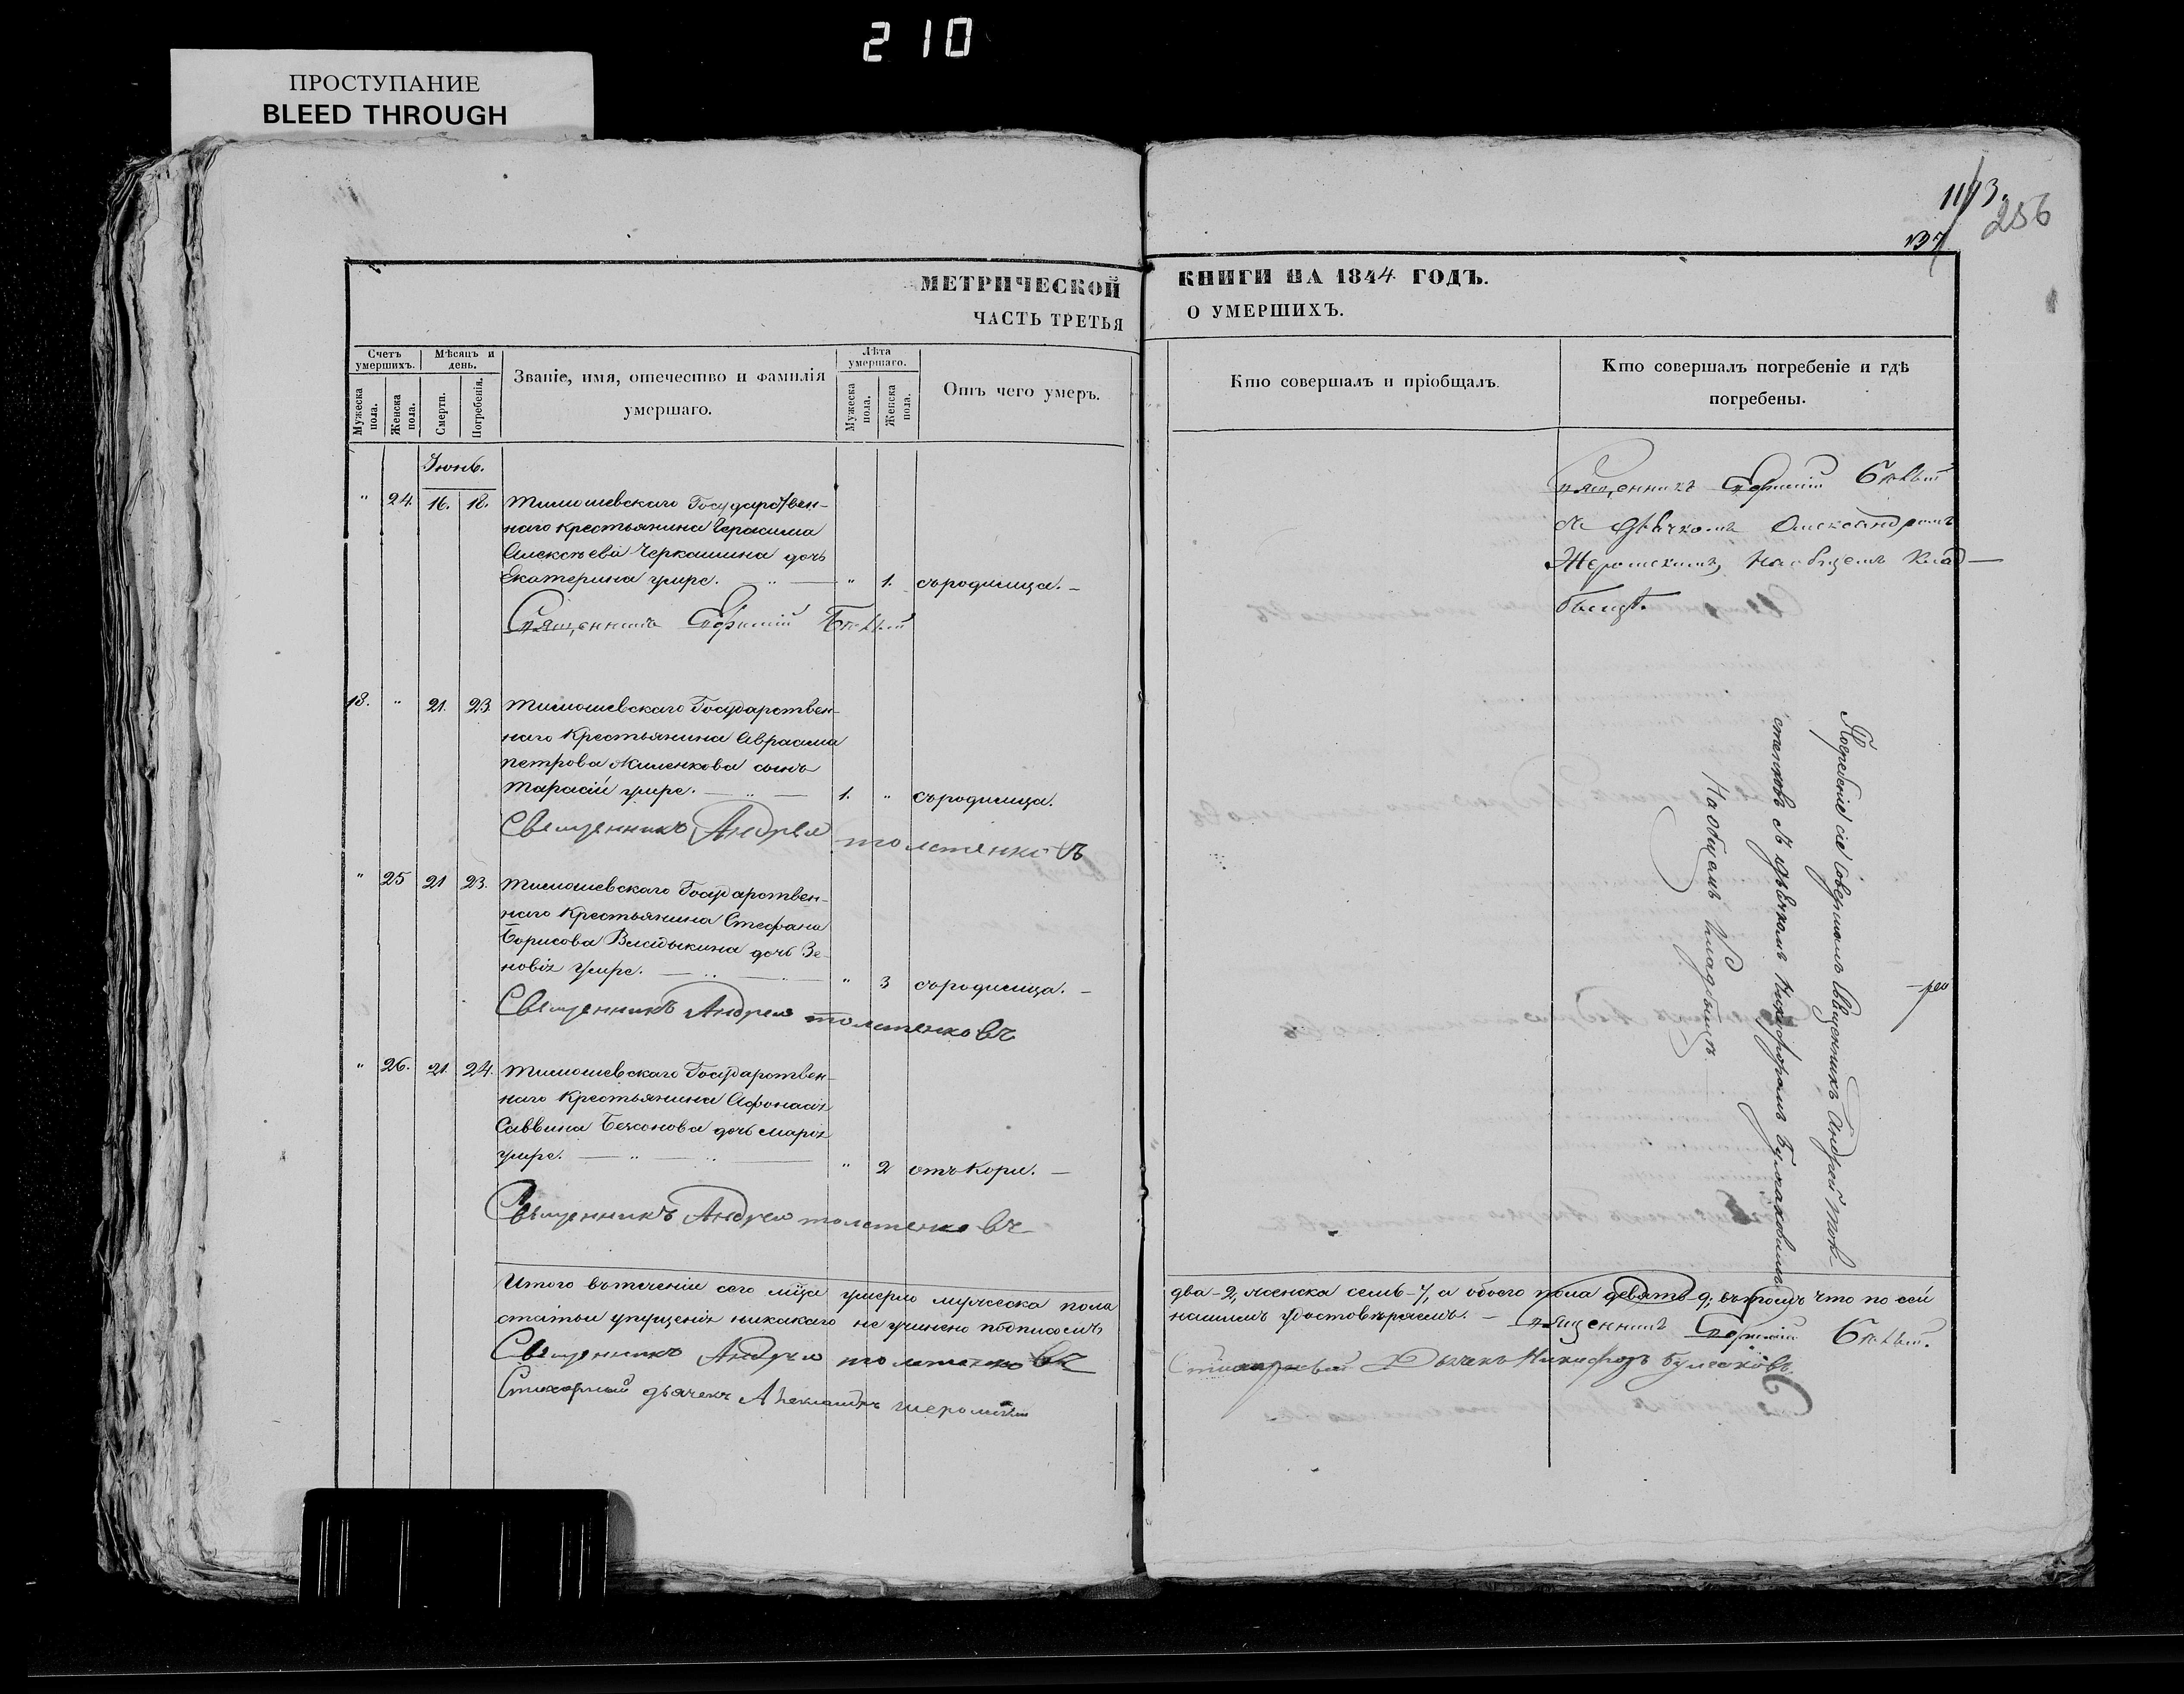 210
ПРОСТУПАНИЕ
BLEED THROUGH
1173.
256
137
МЕТРИЧЕСКОЙ КНИГИ НА 1844 ГОДЪ.
ЧАСТЬ ТРЕТЬЯ О УМЕРШИХЪ.
Счетъ умершихъ.
Мужеска пола.
Женска пола.
Мѣсяцъ и день.
Смерти.
Погребенія.
Званіе, имя, отечество и фамилія
умершаго.
Лѣта умершаго.
Мужеска пола.
Женска пола.
Отъ чего умеръ.
Кто совершалъ и пріобщалъ.
Кто совершалъ погребеніе и гдѣ
погребены.
Іюнь.
" 24. 16. 18. Тимошевскаго Государствен-
наго крестьянина Герасима
Алексѣева Черкашина дочь
Екатерина умре. " 1. съродимца.
Священникъ Ефимій
Священникъ Ефимій
съ дьячкомъ Александромъ
на общемъ клад-
бищѣ.
18. " 21. 23. Тимошевскаго Государствен-
наго Крестьянина Авраама
петрова Миленкова сынъ
Тарасій умре. 1. " съродимца.
Священникъ Андрей толстенковъ
" 25 21 23. Тимошевскаго Государствен-
наго Крестьянина Стефана
Борисова Владыкина дочь Зе-
новія умре. " 3 съродимца.
Священникъ Андрей толстенковъ
" 26. 21. 24. Тимошевскаго Государствен-
наго Крестьянина Афонасія
Саввина Безсонова дочь Марія
умре. " 2 отъ кори.
Священникъ Андрей толстенковъ
Погребеніе сіе совершалъ Священникъ Андрей тол-
стенковъ съ дьячкомъ Никифоромъ Булгаковымъ
На общемъ кладбищѣ
Итого въ теченіи сего мца умерло мужеска пола два-2, женска семь-7, а обоего пола девять-9; въ томъ что по сей
статьи упущенія никакого не учинено подписомъ нашимъ удостовѣряемъ. Священникъ Ефимій
Священникъ Андрей толстенковъ
Стихарный дьячекъ Никифоръ Булгаковъ
Стихарный дьячекъ Александръ